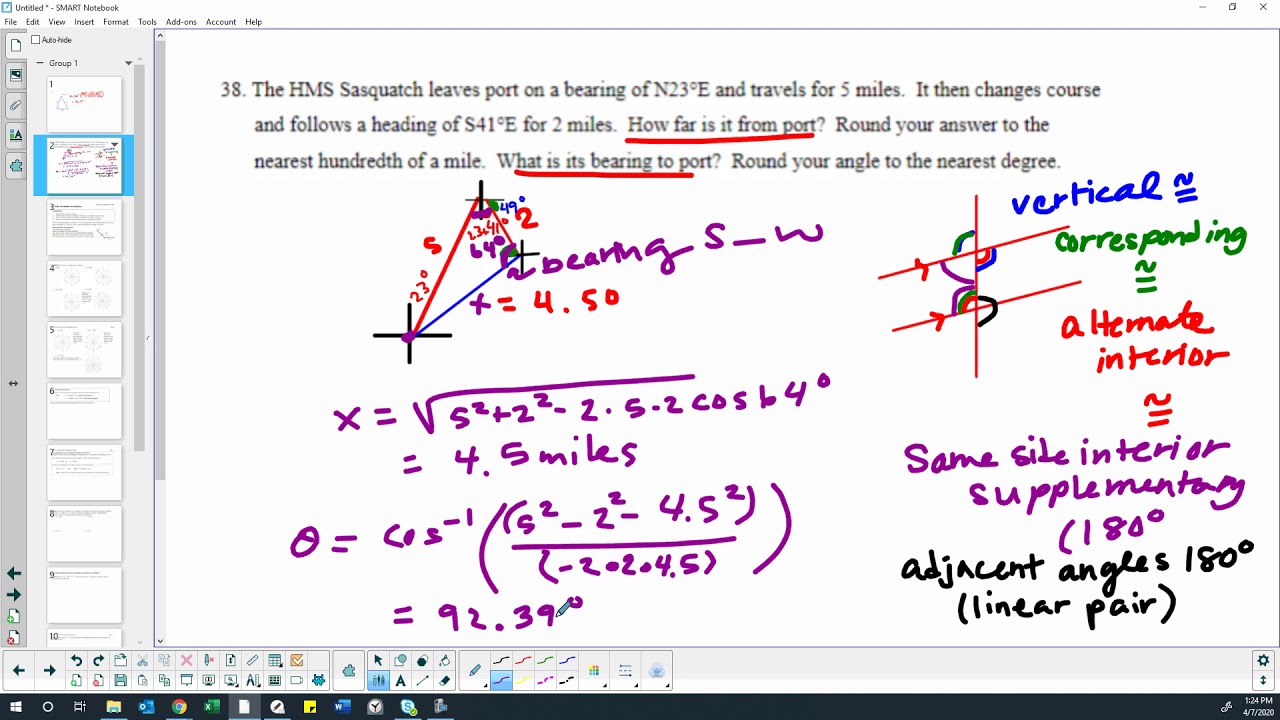 Untitled * - SMART Notebook
File Edit View Insert Format Tools Add-ons Account Help
Auto-hide
Group 1
1
2
3
4
5
6
7
8
9
10
38. The HMS Sasquatch leaves port on a bearing of N23°E and travels for 5 miles. It then changes course
and follows a heading of S41°E for 2 miles. How far is it from port? Round your answer to the
nearest hundredth of a mile. What is its bearing to port? Round your angle to the nearest degree.
49°
23+41°
2
5
64°
23°
bearing S _ W
x = 4.50
x = √5²+2²-2·5·2cos64°
= 4.5miles
θ = cos⁻¹((5²-2²-4.5²)/(-2·2·4.5))
= 92.39°
vertical ≅
corresponding
≅
alternate
interior
≅
Same side interior
supplementary
(180°
adjacent angles 180°
(linear pair)
1:24 PM
4/7/2020